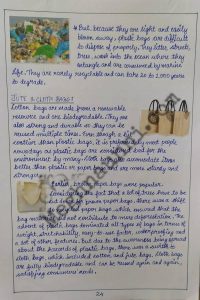 * But, because they are light and easily
blown away, plastic bags are difficult
to dispose of properly. They litter streets,
trees, wash into the ocean where they
entangle and are consumed by marine
life. They are rarely recyclable and can take 20 to 1,000 years
to degrade.
JUTE & CLOTH BAGS:
Cotton bags are made from a renewable
resource and are biodegradable. They are
also strong and durable so they can be
reused multiple times. Even though a bit
costlier than plastic bags, it is preferred by most people
nowadays as plastic bags are
environment by many. Cloth bags accomodate items
better than plastic or paper and are more sturdy and
stronger.
Earlier, brown paper bags were popular.
Considering the fact that a lot of trees have to be
cut down to make paper bags, there was a shift
to recycled paper bags which ensured that the
bag making did not contribute to more deforestation. The
advent of plastic bags dominated all types of bags in terms of
weight, stretchability, easy to use factor, water proofing and
a lot of other factors. But due to the awareness being spread
about the hazards of plastic bags, there was a switch to
cloth bags, which included cotton and jute bags. Cloth bags
are fully biodegradable and can be reused again and again,
satisfying consumer needs.
24